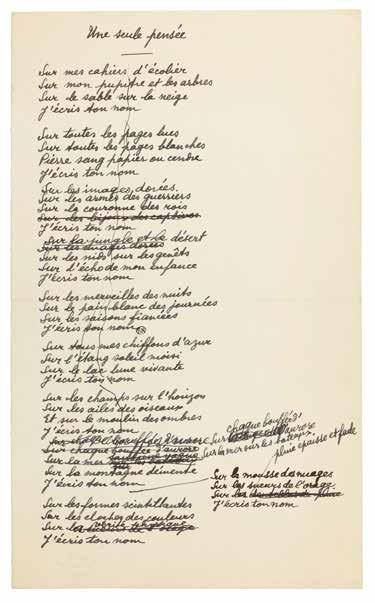 Une seule pensée
Sur mes cahiers d'écolier
Sur mon pupitre et les arbres
Sur le sable sur la neige
J'écris ton nom
Sur toutes les pages lues
Sur toutes les pages blanches
Pierre sang papier ou cendre
J'écris ton nom
Sur les images dorées
Sur les armes des guerriers
Sur la couronne des rois
Sur les bijoux des captives
J'écris ton nom
Sur la jungle et le désert
Sur les nuages dorés
Sur les nids sur les genêts
Sur l'écho de mon enfance
J'écris ton nom
Sur les merveilles des nuits
Sur le pain blanc des journées
Sur les saisons fiancées
J'écris ton nom
Sur tous mes chiffons d'azur
Sur l'étang soleil moisi
Sur le lac lune vivante
J'écris ton nom
Sur les champs sur l'horizon
Sur les ailes des oiseaux
Et sur le moulin des ombres
J'écris ton nom
Sur chaque bouffée d'aurore
Sur la mer
Sur la montagne démente
J'écris ton nom
chaque bouffée
Sur d'aurore
Sur la mer sur les bateaux
pluie épaisse et fade
Sur la mousse des nuages
Sur les sueurs de l'orage
Sur la
J'écris ton nom
Sur les formes scintillantes
Sur les cloches des couleurs
Sur la vérité physique
J'écris ton nom